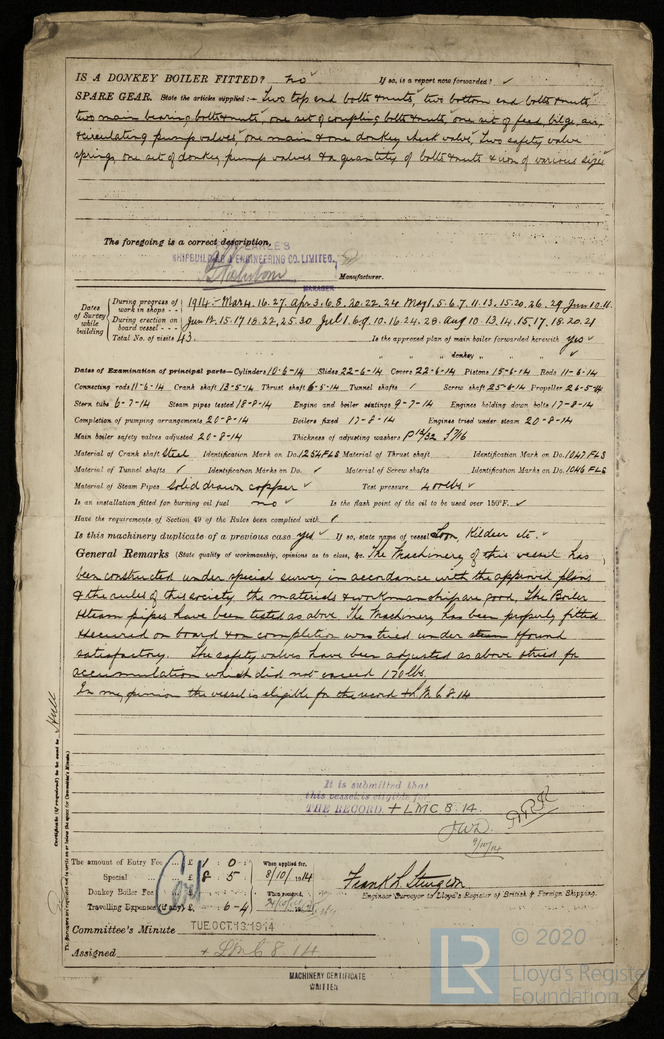 IS A DONKEY BOILER FITTED? no If so, is a report now forwarded? ✓
SPARE GEAR. State the articles supplied:— Two top end bolts & nuts, two bottom end bolts & nuts
two main bearing bolts & nuts, one set of coupling bolts & nuts, one set of feed, bilge, air,
& circulating pump valves, one main & one donkey check valve, two safety valve
springs, one set of donkey pump valves & a quantity of bolts & nuts & iron of various sizes
The foregoing is a correct description,
EARLE'S
SHIPBUILDING & ENGINEERING CO. LIMITED,
Manufacturer.
MANAGER
Dates of Survey while building
During progress of work in shops - - 1914:- Mar 4. 16. 27. Apr 3. 6. 8. 20. 22. 24 May 1. 5. 6. 7. 11. 13. 15. 20. 26. 29 Jun 10. 11.
During erection on board vessel - - - Jun 12. 15. 17. 18. 22. 25. 30 Jul 1. 6. 9. 10. 16. 24. 28. Aug 10. 13. 14. 15. 17. 18. 20. 21
Total No. of visits 43. Is the approved plan of main boiler forwarded herewith yes ✓
" " " donkey " " " ✓
Dates of Examination of principal parts—Cylinders 10-6-14 Slides 22-6-14 Covers 22-6-14 Pistons 15-6-14 Rods 11-6-14
Connecting rods 11-6-14 Crank shaft 13-5-14 Thrust shaft 6-5-14 Tunnel shafts / Screw shaft 25-6-14 Propeller 26-5-14
Stern tube 6-7-14 Steam pipes tested 18-8-14 Engine and boiler seatings 9-7-14 Engines holding down bolts 17-8-14
Completion of pumping arrangements 20-8-14 Boilers fixed 17-8-14 Engines tried under steam 20-8-14
Main boiler safety valves adjusted 20-8-14 Thickness of adjusting washers P 13/32 S 7/16
Material of Crank shaft Steel Identification Mark on Do. 1254 FLS Material of Thrust shaft Identification Mark on Do. 1047 FLS
Material of Tunnel shafts ✓ Identification Marks on Do. ✓ Material of Screw shafts Identification Marks on Do. 1046 FLS
Material of Steam Pipes Solid drawn copper ✓ Test pressure 400 lbs ✓
Is an installation fitted for burning oil fuel no ✓ Is the flash point of the oil to be used over 150°F. ✓
Have the requirements of Section 49 of the Rules been complied with ✓
Is this machinery duplicate of a previous case yes ✓ If so, state name of vessel Loon, Kildeer etc. ✓
General Remarks (State quality of workmanship, opinions as to class, &c. The Machinery of this vessel has
been constructed under special survey in accordance with the approved plans
& the rules of this society, the materials & workmanship are good, The Boiler
& steam pipes have been tested as above. The Machinery has been properly fitted
& secured on board & on completion was tried under steam & found
satisfactory. The safety valves have been adjusted as above & tried for
accumulation which did not exceed 170 lbs.
In my opinion the vessel is eligible for the record + L.M.C. 8.14
It is submitted that
this vessel is eligible for
THE RECORD. + LMC 8.14.
J.W.D.
9/10/14
The amount of Entry Fee .. £ 1 : 0 : When applied for,
Special ... £ 8 : 5 : 8/10/1914
Donkey Boiler Fee ... £ : : When received,
Travelling Expenses (if any) £ : 6-4
Frank L. Sturgeon
Engineer Surveyor to Lloyd's Register of British & Foreign Shipping.
Committee's Minute TUE. OCT. 13. 1914
Assigned + LMC 8.14
MACHINERY CERTIFICATE
WRITTEN
Certificate (if required) to be sent to Hull
(The Surveyors are requested not to write on or below the space for Committee's Minute.)
LR © 2020
Lloyd's Register
Foundation